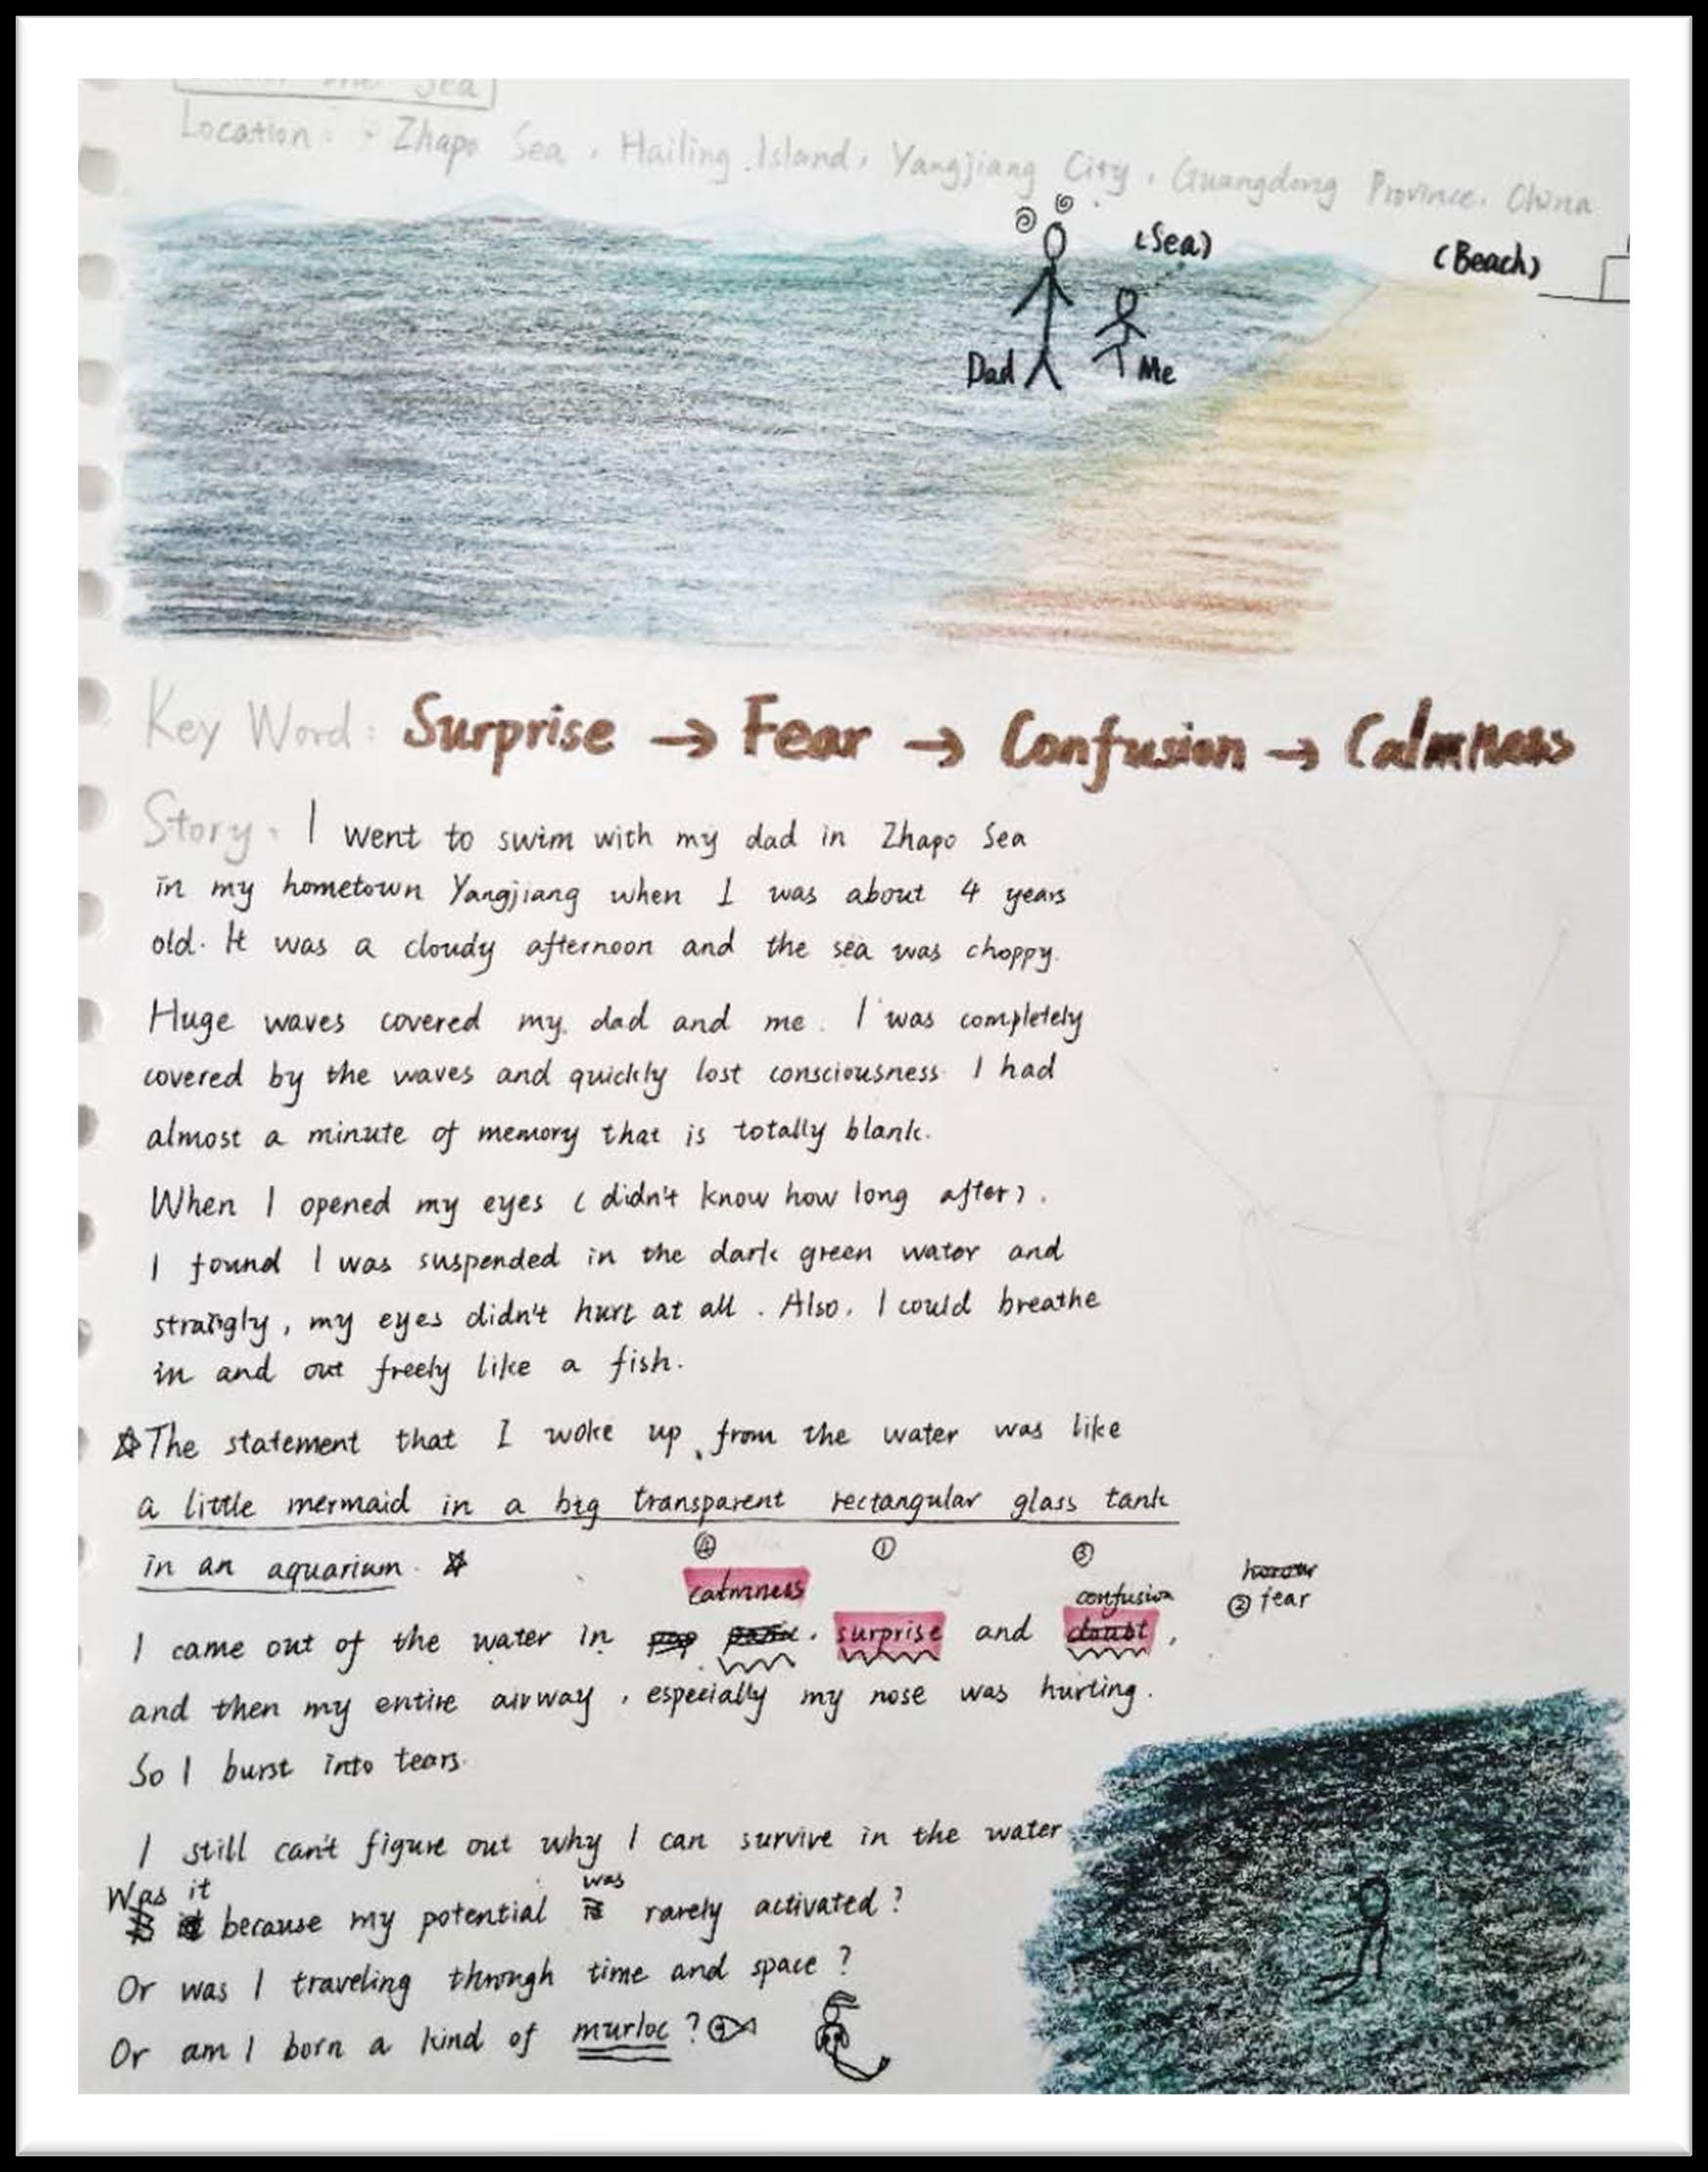 the Sea
Location: Zhapo Sea, Hailing Island, Yangjiang City, Guangdong Province, China
(Sea)
(Beach)
Dad
Me
Key Word: Surprise → Fear → Confusion → Calmness
Story: I went to swim with my dad in Zhapo Sea
in my hometown Yangjiang when I was about 4 years
old. It was a cloudy afternoon and the sea was choppy.
Huge waves covered my dad and me. I was completely
covered by the waves and quickly lost consciousness. I had
almost a minute of memory that is totally blank.
When I opened my eyes (didn't know how long after),
I found I was suspended in the dark green water and
strangly, my eyes didn't hurt at all. Also, I could breathe
in and out freely like a fish.
☆The statement that I woke up from the water was like
a little mermaid in a big transparent rectangular glass tank
in an aquarium. ☆
④ ① ③
calmness confusion ② fear
I came out of the water in surprise and doubt,
and then my entire airway, especially my nose was hurting.
So I burst into tears.
I still can't figure out why I can survive in the water
Was it was
because my potential rarely activated?
Or was I traveling through time and space?
Or am I born a kind of murloc?